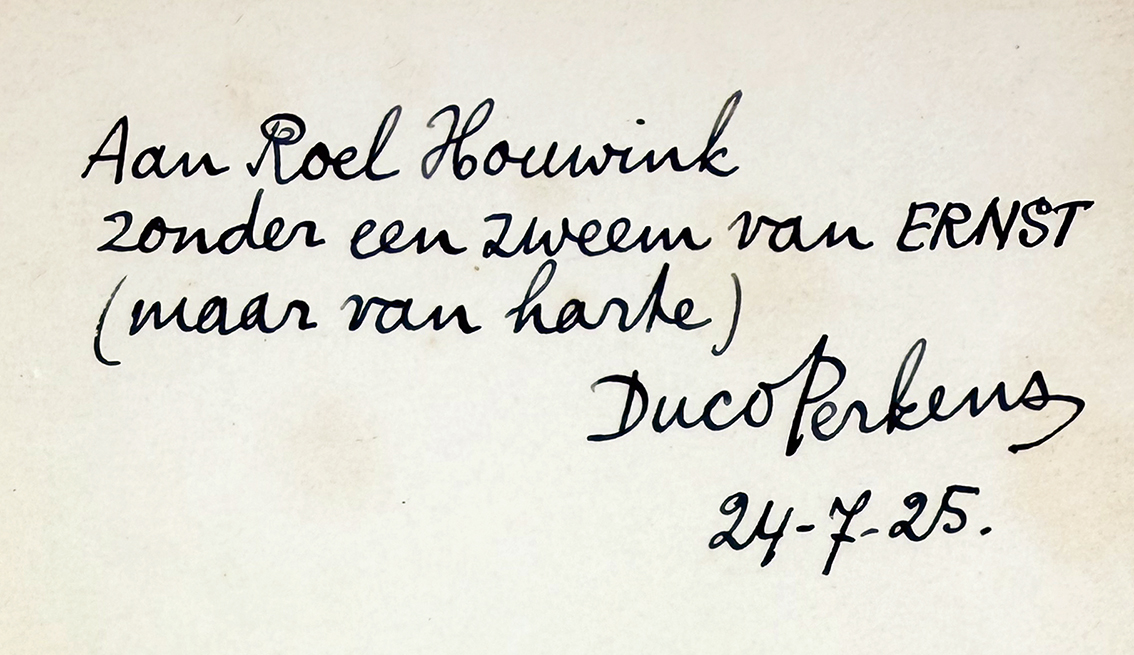 Aan Roel Houwink
zonder een zweem van ERNST
(maar van harte)
Duco Perkens
24-7-25.